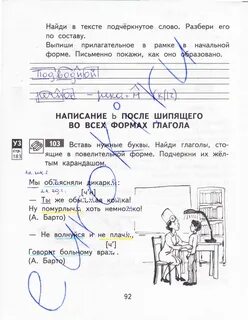 Найди в тексте подчёркнутое слово. Разбери его
по составу.
Выпиши прилагательное в рамке в начальной
форме. Письменно покажи, как оно образовано.
Подводной
НАПИСАНИЕ Ь ПОСЛЕ ШИПЯЩЕГО
ВО ВСЕХ ФОРМАХ ГЛАГОЛА
У3
103 Вставь нужные буквы. Найди глаголы, сто-
ящие в повелительной форме. Подчеркни их жёл-
тым карандашом.
Мы объясняли дикарк
— Ты же обы ая кошка!
Ну помурлыч хоть немножко!
(А. Барто)
— Не волнуйся и не плач
Говорит больному врач
(А. Барто)
92